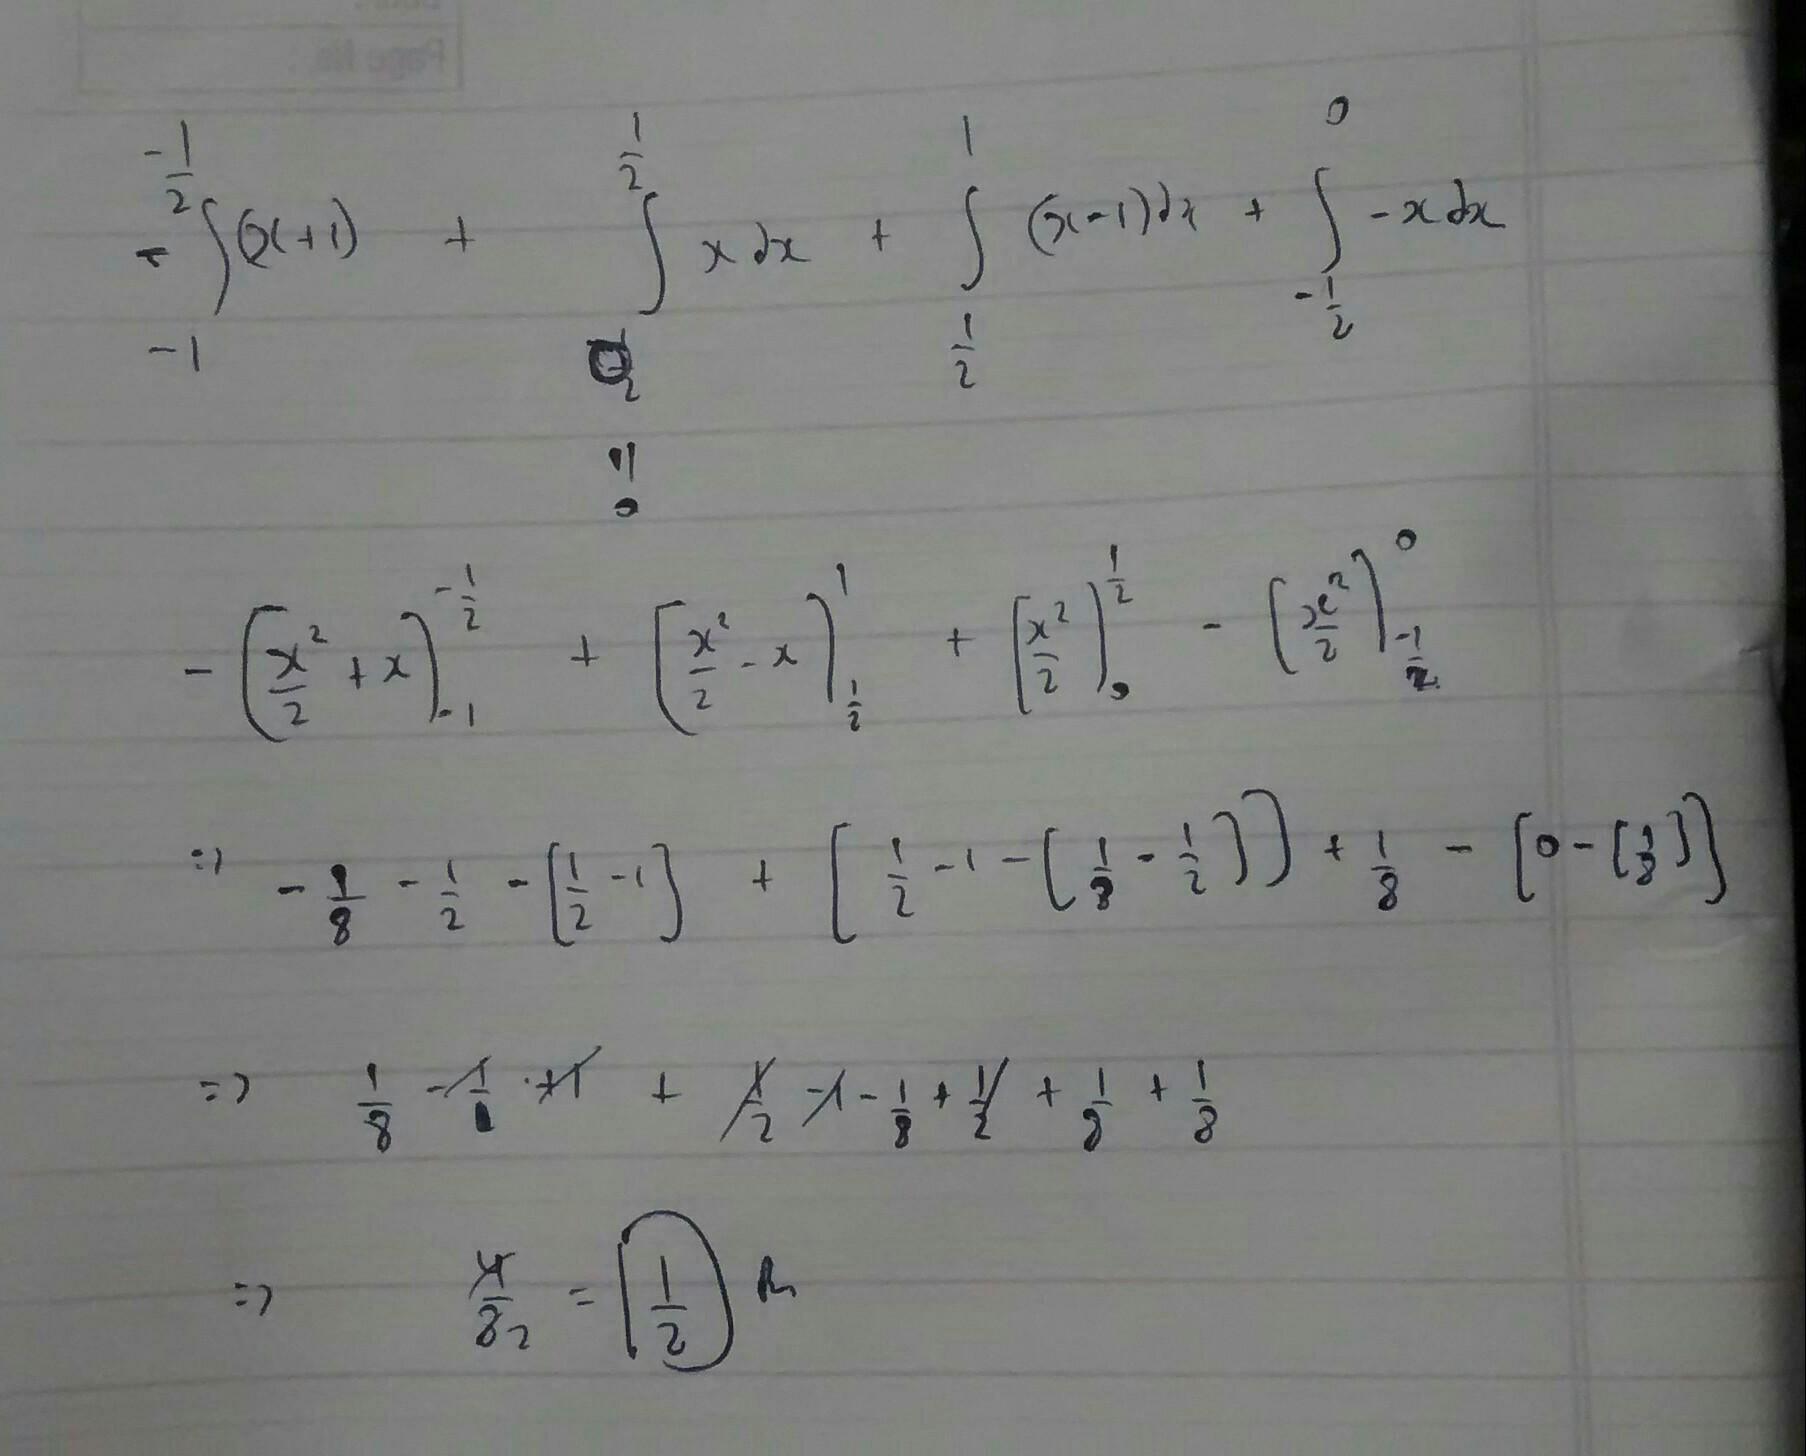 Page No.:
-∫_{-1}^{-1/2} (x+1) + ∫_{0}^{1/2} x dx + ∫_{1/2}^{1} (x-1)dx + ∫_{-1/2}^{0} -x dx
0
-[x²/2 + x]_{-1}^{-1/2} + [x²/2 - x]_{1/2}^{1} + [x²/2]_{0}^{1/2} - [x²/2]_{-1/2}^{0}
⇒ -1/8 - 1/2 - [1/2 - 1] + [1/2 - 1 - [1/8 - 1/2]] + 1/8 - [0 - [1/8]]
⇒ 1/8 - 1/1 + 1 + 1/2 - 1 - 1/8 + 1/2 + 1/8 + 1/8
⇒ 4/8 2 = 1/2